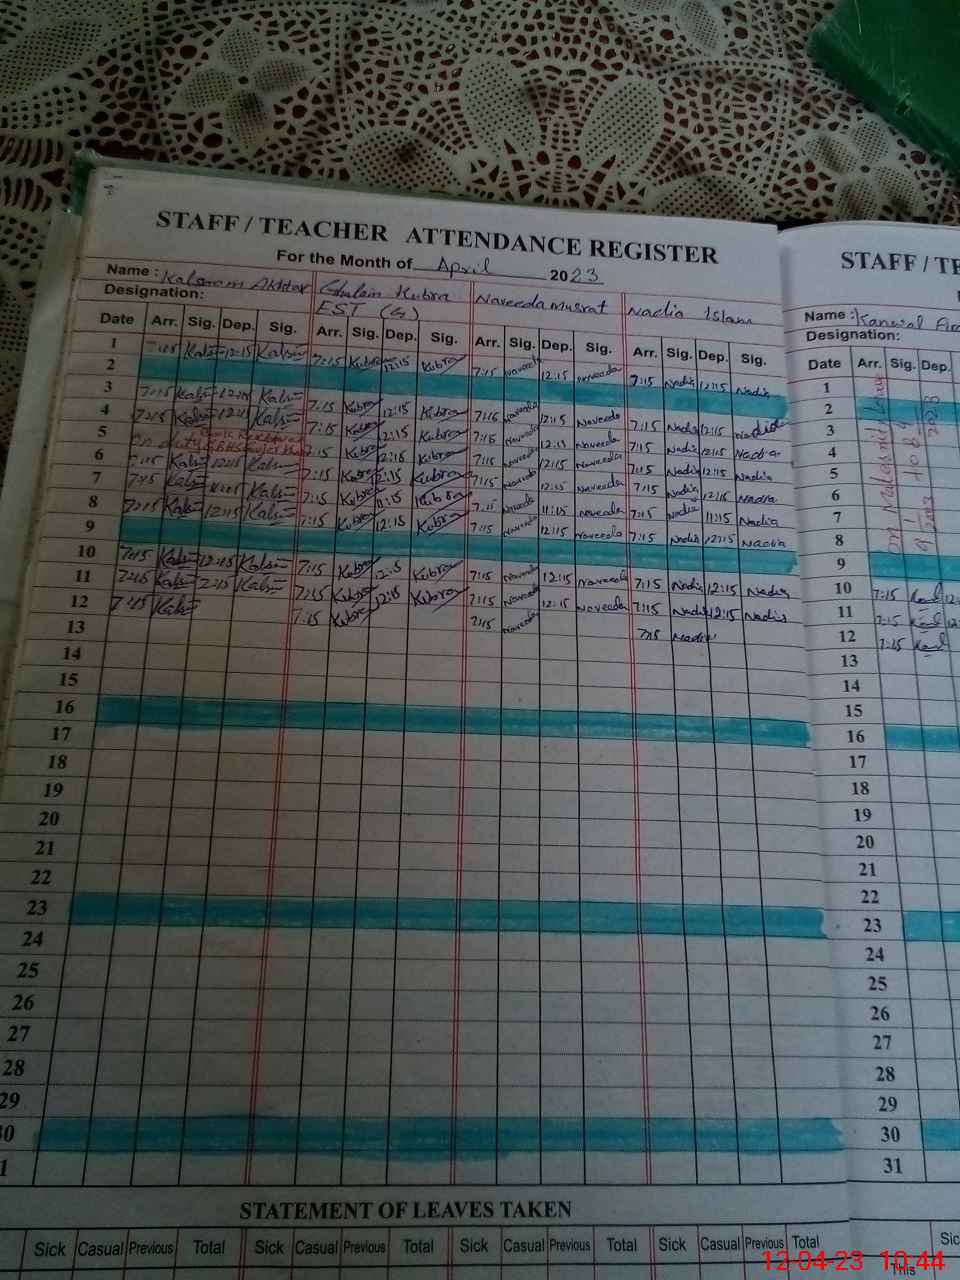 STAFF / TEACHER ATTENDANCE REGISTER
For the Month of April 2023
Name : Kalsoom Akhtar Ghulam Kubra Naveeda Musrat Nadia Islam
Designation: EST (G)
Date Arr. Sig. Dep. Sig. Arr. Sig. Dep. Sig. Arr. Sig. Dep. Sig. Arr. Sig. Dep. Sig.
1 7:15 Kalsi 12:15 Kalsi 7:15 Kubra 12:15 Kubra 7:15 Naveeda 12:15 Naveeda 7:15 Nadia 12:15 Nadia
2
3 7:15 Kalsi 12:15 Kalsi 7:15 Kubra 12:15 Kubra 7:15 Naveeda 12:15 Naveeda 7:15 Nadia 12:15 Nadia
4 7:15 Kalsi 12:15 Kalsi 7:15 Kubra 12:15 Kubra 7:15 Naveeda 12:15 Naveeda 7:15 Nadia 12:15 Nadia
5 on duty 7:15 Kubra 12:15 Kubra 7:15 Naveeda 12:15 Naveeda 7:15 Nadia 12:15 Nadia
6 7:15 Kalsi 12:15 Kalsi 7:15 Kubra 12:15 Kubra 7:15 Naveeda 12:15 Naveeda 7:15 Nadia 12:15 Nadia
7 7:15 Kalsi 11:15 Kalsi 7:15 Kubra 11:15 Kubra 7:15 Naveeda 11:15 Naveeda 7:15 Nadia 11:15 Nadia
8 7:15 Kalsi 12:15 Kalsi 7:15 Kubra 12:15 Kubra 7:15 Naveeda 12:15 Naveeda 7:15 Nadia 12:15 Nadia
9
10 7:15 Kalsi 12:15 Kalsi 7:15 Kubra 12:15 Kubra 7:15 Naveeda 12:15 Naveeda 7:15 Nadia 12:15 Nadia
11 7:15 Kalsi 12:15 Kalsi 7:15 Kubra 12:15 Kubra 7:15 Naveeda 12:15 Naveeda 7:15 Nadia 12:15 Nadia
12 7:15 Kalsi 7:15 Kubra 7:15 Naveeda 7:15 Nadia
13
14
15
16
17
18
19
20
21
22
23
24
25
26
27
28
29
30
31
STATEMENT OF LEAVES TAKEN
Sick Casual Previous Total Sick Casual Previous Total Sick Casual Previous Total Sick Casual Previous Total
STAFF / TE
Name : Kanwal
Designation:
Date Arr. Sig. Dep.
1
2
3
4
5
6
7
8
on Maternity Leave
9
10 7:15 12:
11 7:15 12:
12 7:15
13
14
15
16
17
18
19
20
21
22
23
24
25
26
27
28
29
30
31
Sic
This
12-04-23 10:44